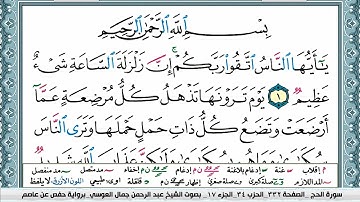 بِسْمِ ٱللَّهِ ٱلرَّحْمَٰنِ ٱلرَّحِيمِ
يَٰٓأَيُّهَا ٱلنَّاسُ ٱتَّقُوا۟ رَبَّكُمْ ۚ إِنَّ زَلْزَلَةَ ٱلسَّاعَةِ شَىْءٌ
عَظِيمٌ ١ يَوْمَ تَرَوْنَهَا تَذْهَلُ كُلُّ مُرْضِعَةٍ عَمَّآ
أَرْضَعَتْ وَتَضَعُ كُلُّ ذَاتِ حَمْلٍ حَمْلَهَا وَتَرَى ٱلنَّاسَ
سُكَٰرَىٰ وَمَا هُم بِسُكَٰرَىٰ وَلَٰكِنَّ عَذَابَ ٱللَّهِ شَدِيدٌ
سورة الحج - الصفحة ٣٣٢ - الجزء ٣٤ - الجزء ١٧ - بصوت الشيخ عبد الرحمن جمال العوسي - برواية حفص عن عاصم